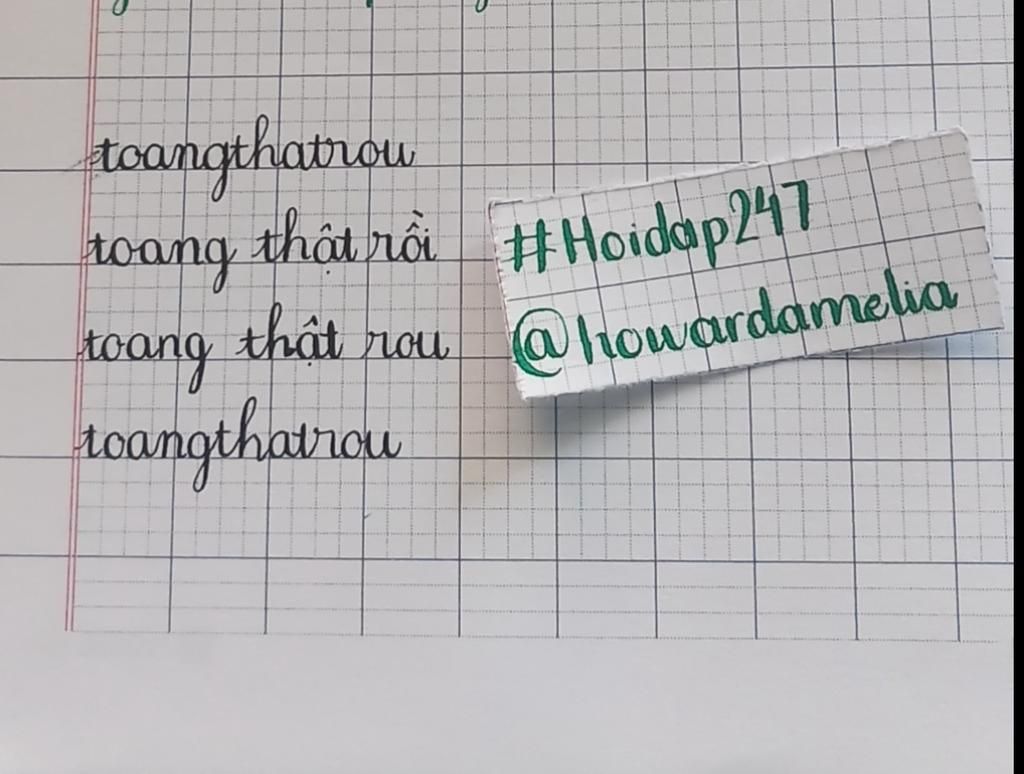 toangthatrou
toang thật rồi
toang thật rou
toangthatrou
#Hoidap247
@howardamelia